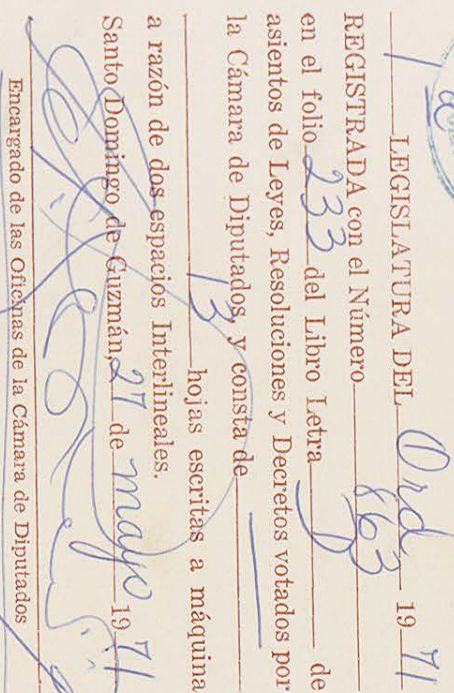 1a LEGISLATURA DEL Ord 1971
REGISTRADA con el Número 863
en el folio 233 del Libro Letra D de
asientos de Leyes, Resoluciones y Decretos votados por
la Cámara de Diputados, y consta de
13 hojas escritas a máquina
a razón de dos espacios Interlineales.
Santo Domingo de Guzmán, 27 de mayo 1971
Encargado de las Oficinas de la Cámara de Diputados